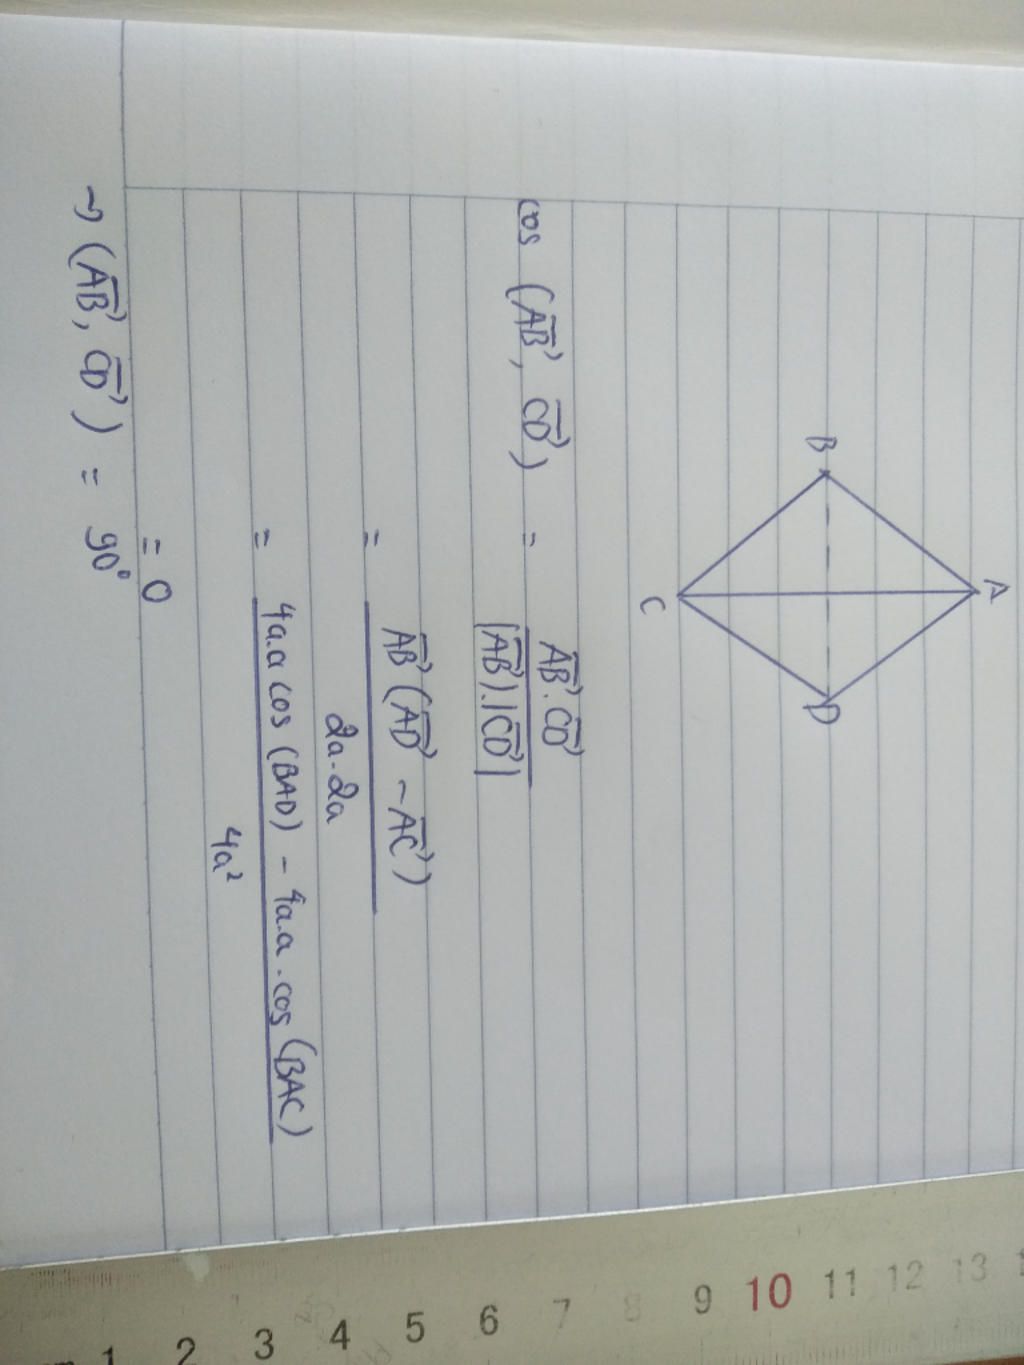 A
B
D
C
cos (AB⃗, CD⃗) = AB⃗.CD⃗ / |AB⃗|.|CD⃗|
= AB⃗(AD⃗ - AC⃗) / 2a.2a
= 4a.a cos(BAD) - 4a.a.cos(BAC) / 4a²
= 0
→ (AB⃗, CD⃗) = 90°
1 2 3 4 5 6 7 8 9 10 11 12 13